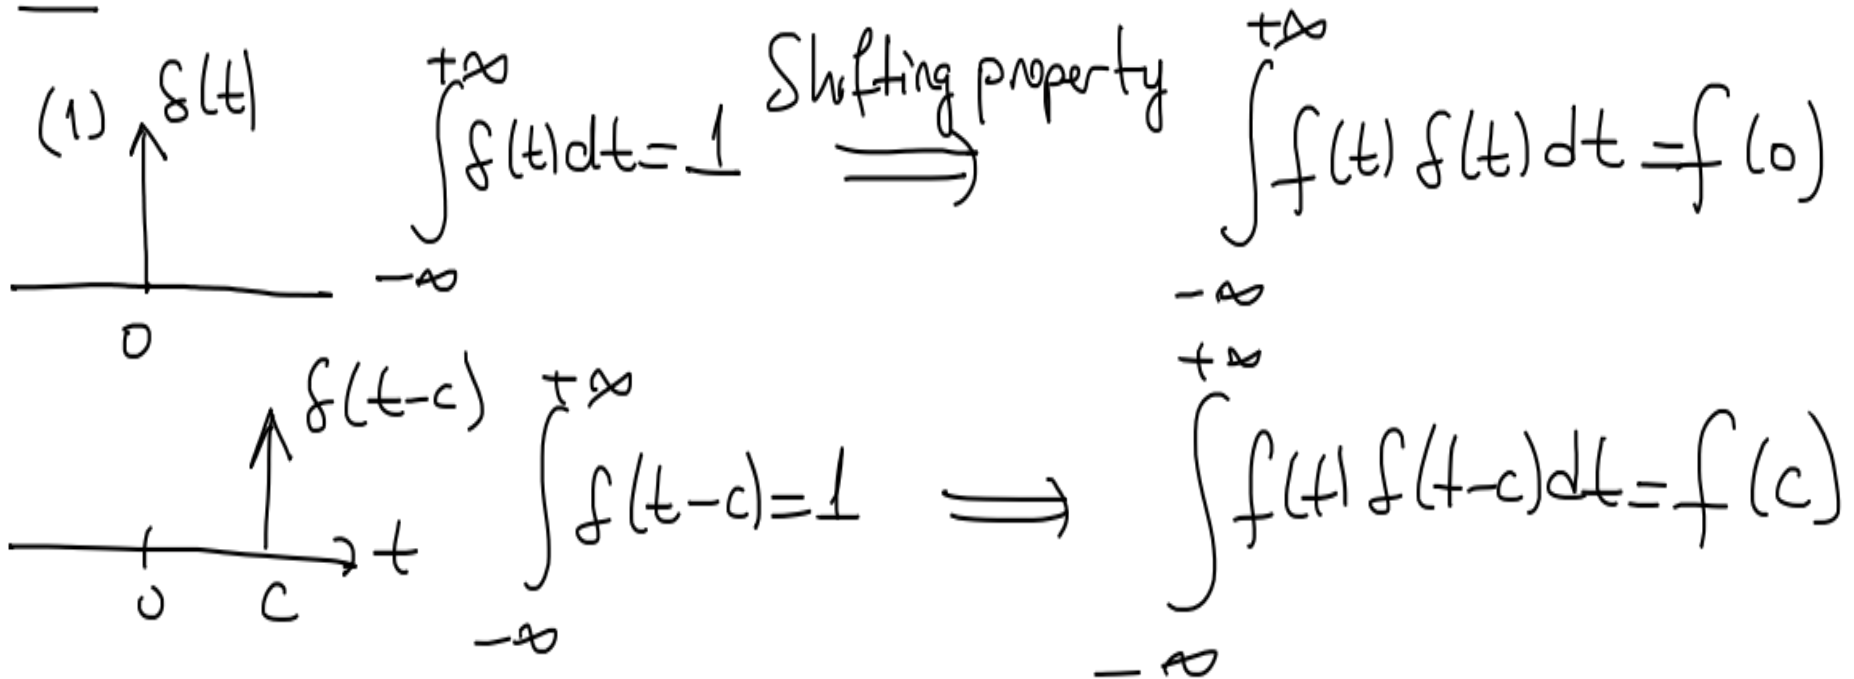 (1) δ(t) ∫_{-∞}^{+∞} δ(t)dt=1 Shifting property ⟹ ∫_{-∞}^{+∞} f(t) δ(t)dt=f(0)
0
δ(t-c) ∫_{-∞}^{+∞} δ(t-c)=1 ⟹ ∫_{-∞}^{+∞} f(t) δ(t-c)dt=f(c)
0 c t